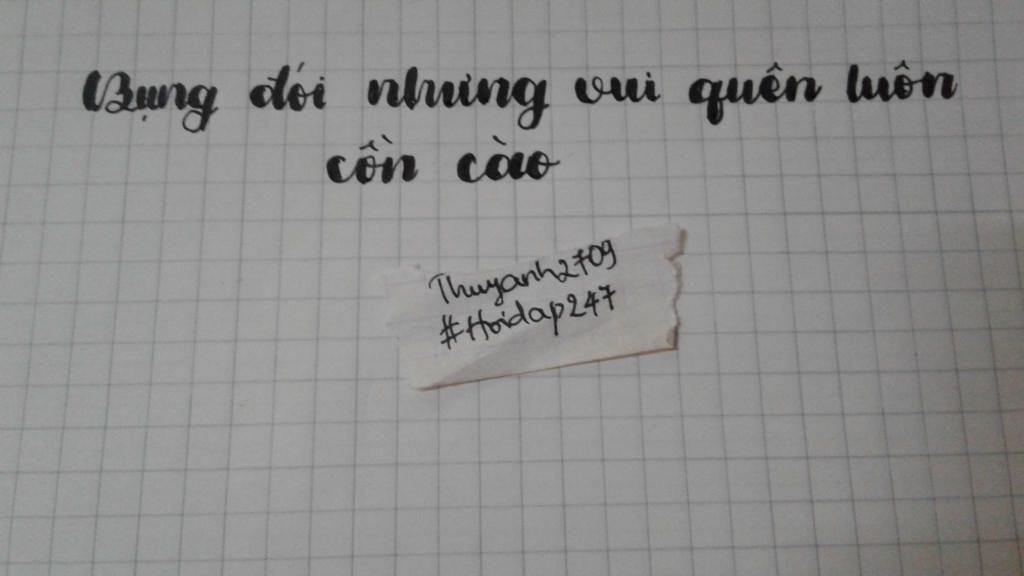 Bụng đói nhưng vui quên luôn
cồn cào
Thuyanh2709
#Hoidap247